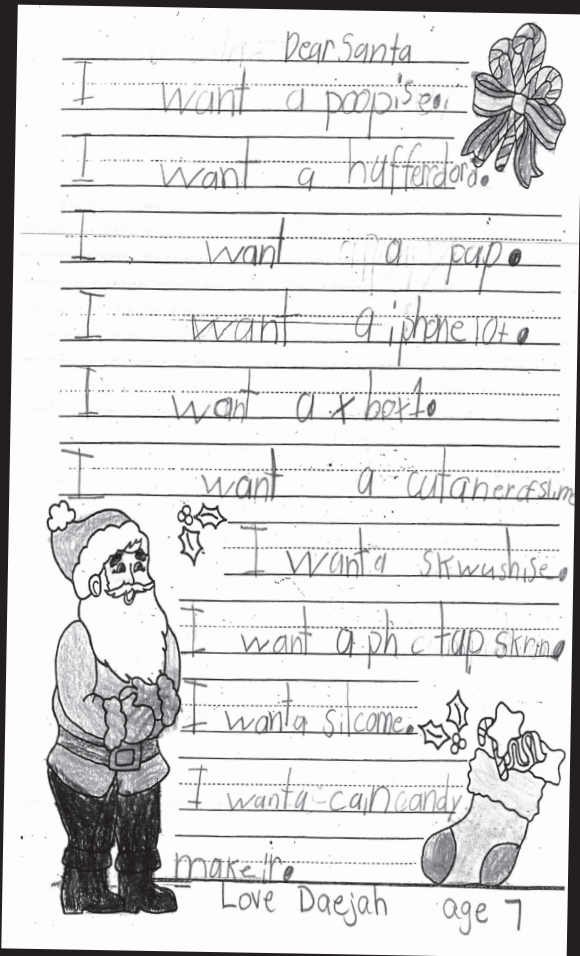 Dear Santa
I want a poopise.
I want a hufferdord.
I want a pup.
I want a iphone 10+.
I want a x box1.
I want a cutanerofslime
I want a skwushise.
I want a ph c tap skrin.
I want a silcome.
I want a cain candy
makeir.
Love Daejah age 7